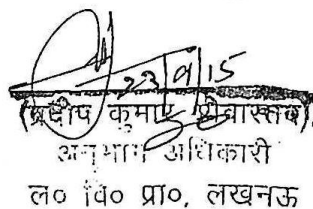 23/9/15
(प्रदीप कुमार श्रीवास्तव)
अनुभाग अधिकारी
ल० वि० प्रा०, लखनऊ